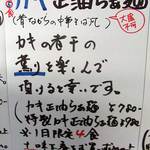 カキ正油らぁ麺
(昔ながらの中華そば風)
大盛
不可
カキの煮干の
薫りを楽しんで
頂けると幸いです。
カキ正油らぁ麺 ¥780-
特製カキ正油らぁ麺
※1日限定4食